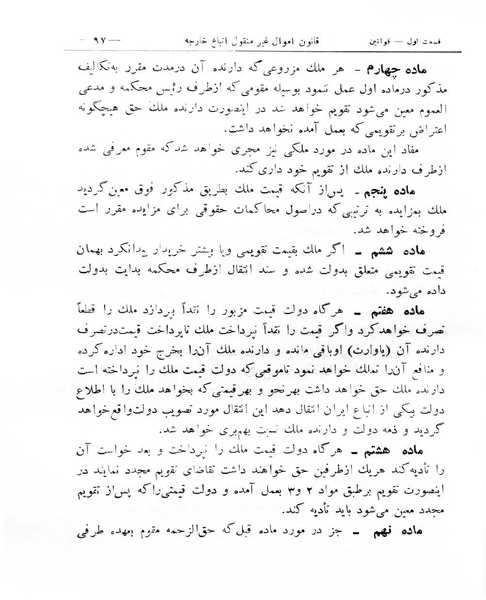 قسمت اول — قوانین قانون اموال غیر منقول اتباع خارجه — ۹۷ —
ماده چهارم - هر ملك مزروعی‌که دارنده آن درمدت مقرر به‌تکالیف
مذکور درماده اول عمل ننمود بوسیله مقومی‌که ازطرف رئیس محکمه و مدعی
العموم معین می‌شود تقویم خواهد شد در اینصورت دارنده ملك حق هیچگونه
اعتراض برتقویمی‌که بعمل آمده نخواهد داشت.
مفاد این ماده در مورد ملکی نیز مجری خواهد شدکه مقوم معرفی شده
ازطرف دارنده ملك از تقویم خود داری‌کند.
ماده پنجم - پس‌از آنکه قیمت ملك بطریق مذکور فوق معین‌گردید
ملك بمزایده به ترتیبی‌که دراصول محاکمات حقوقی برای مزایده مقرر است
فروخته خواهد شد.
ماده ششم - اگر ملك بقیمت تقویمی ویا بیشتر خریدار پیدانکرد بهمان
قیمت تقویمی متعلق بدولت شده و سند انتقال ازطرف محکمه بدایت بدولت
داده می‌شود.
ماده هفتم - هرگاه دولت قیمت مزبور را نقداً بپردازد ملك را قطعاً
تصرف خواهدکرد واگر قیمت را نقداً نپرداخت ملك تاپرداخت قیمت‌درتصرف
دارنده آن (یاوارث) اوباقی مانده و دارنده ملك آن‌را بخرج خود اداره‌کرده
و منافع آن‌را تملك خواهد نمود تاموقعی‌که دولت قیمت ملك را نپرداخته است
دارنده ملك حق خواهد داشت بهرنحو و بهرقیمتی‌که بخواهد ملك را با اطلاع
دولت بیکی از اتباع ایران انتقال دهد این انتقال مورد تصویب دولت‌واقع‌خواهد
گردید و ذمه دولت و دارنده ملك نسبت بهم‌بری خواهد شد.
ماده هشتم - هرگاه دولت قیمت ملك را نپرداخت و بعد خواست آن
را تأدیه‌کند هریك ازطرفین حق خواهند داشت تقاضای تقویم مجدد نمایند در
اینصورت تقویم برطبق مواد ۲ و ۳ بعمل آمده و دولت قیمتی‌راکه پس‌از تقویم
مجدد معین می‌شود باید تأدیه کند.
ماده نهم - جز در مورد ماده قبل‌که حق‌الزحمه مقوم بعهده طرفی